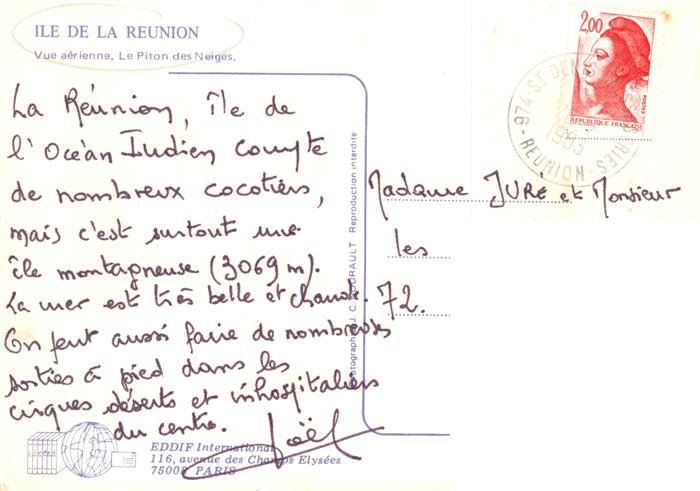 ILE DE LA REUNION
Vue aérienne. Le Piton des Neiges.
La Réunion, île de
l'Océan Indien compte
de nombreux cocotiers,
mais c'est surtout une
île montagneuse (3069 m).
La mer est très belle et chaude.
On peut aussi faire de nombreuses
sorties à pied dans les
cirques déserts et inhospitaliers
du centre. Joël
EDDIF International
116, avenue des Champs Elysées
75008 PARIS
Photographie J. C. NOURAULT Reproduction interdite
2,00
REPUBLIQUE FRANÇAISE
974-ST DENIS
9-REUNION-
Madame JURÉ et Monsieur
les
72.